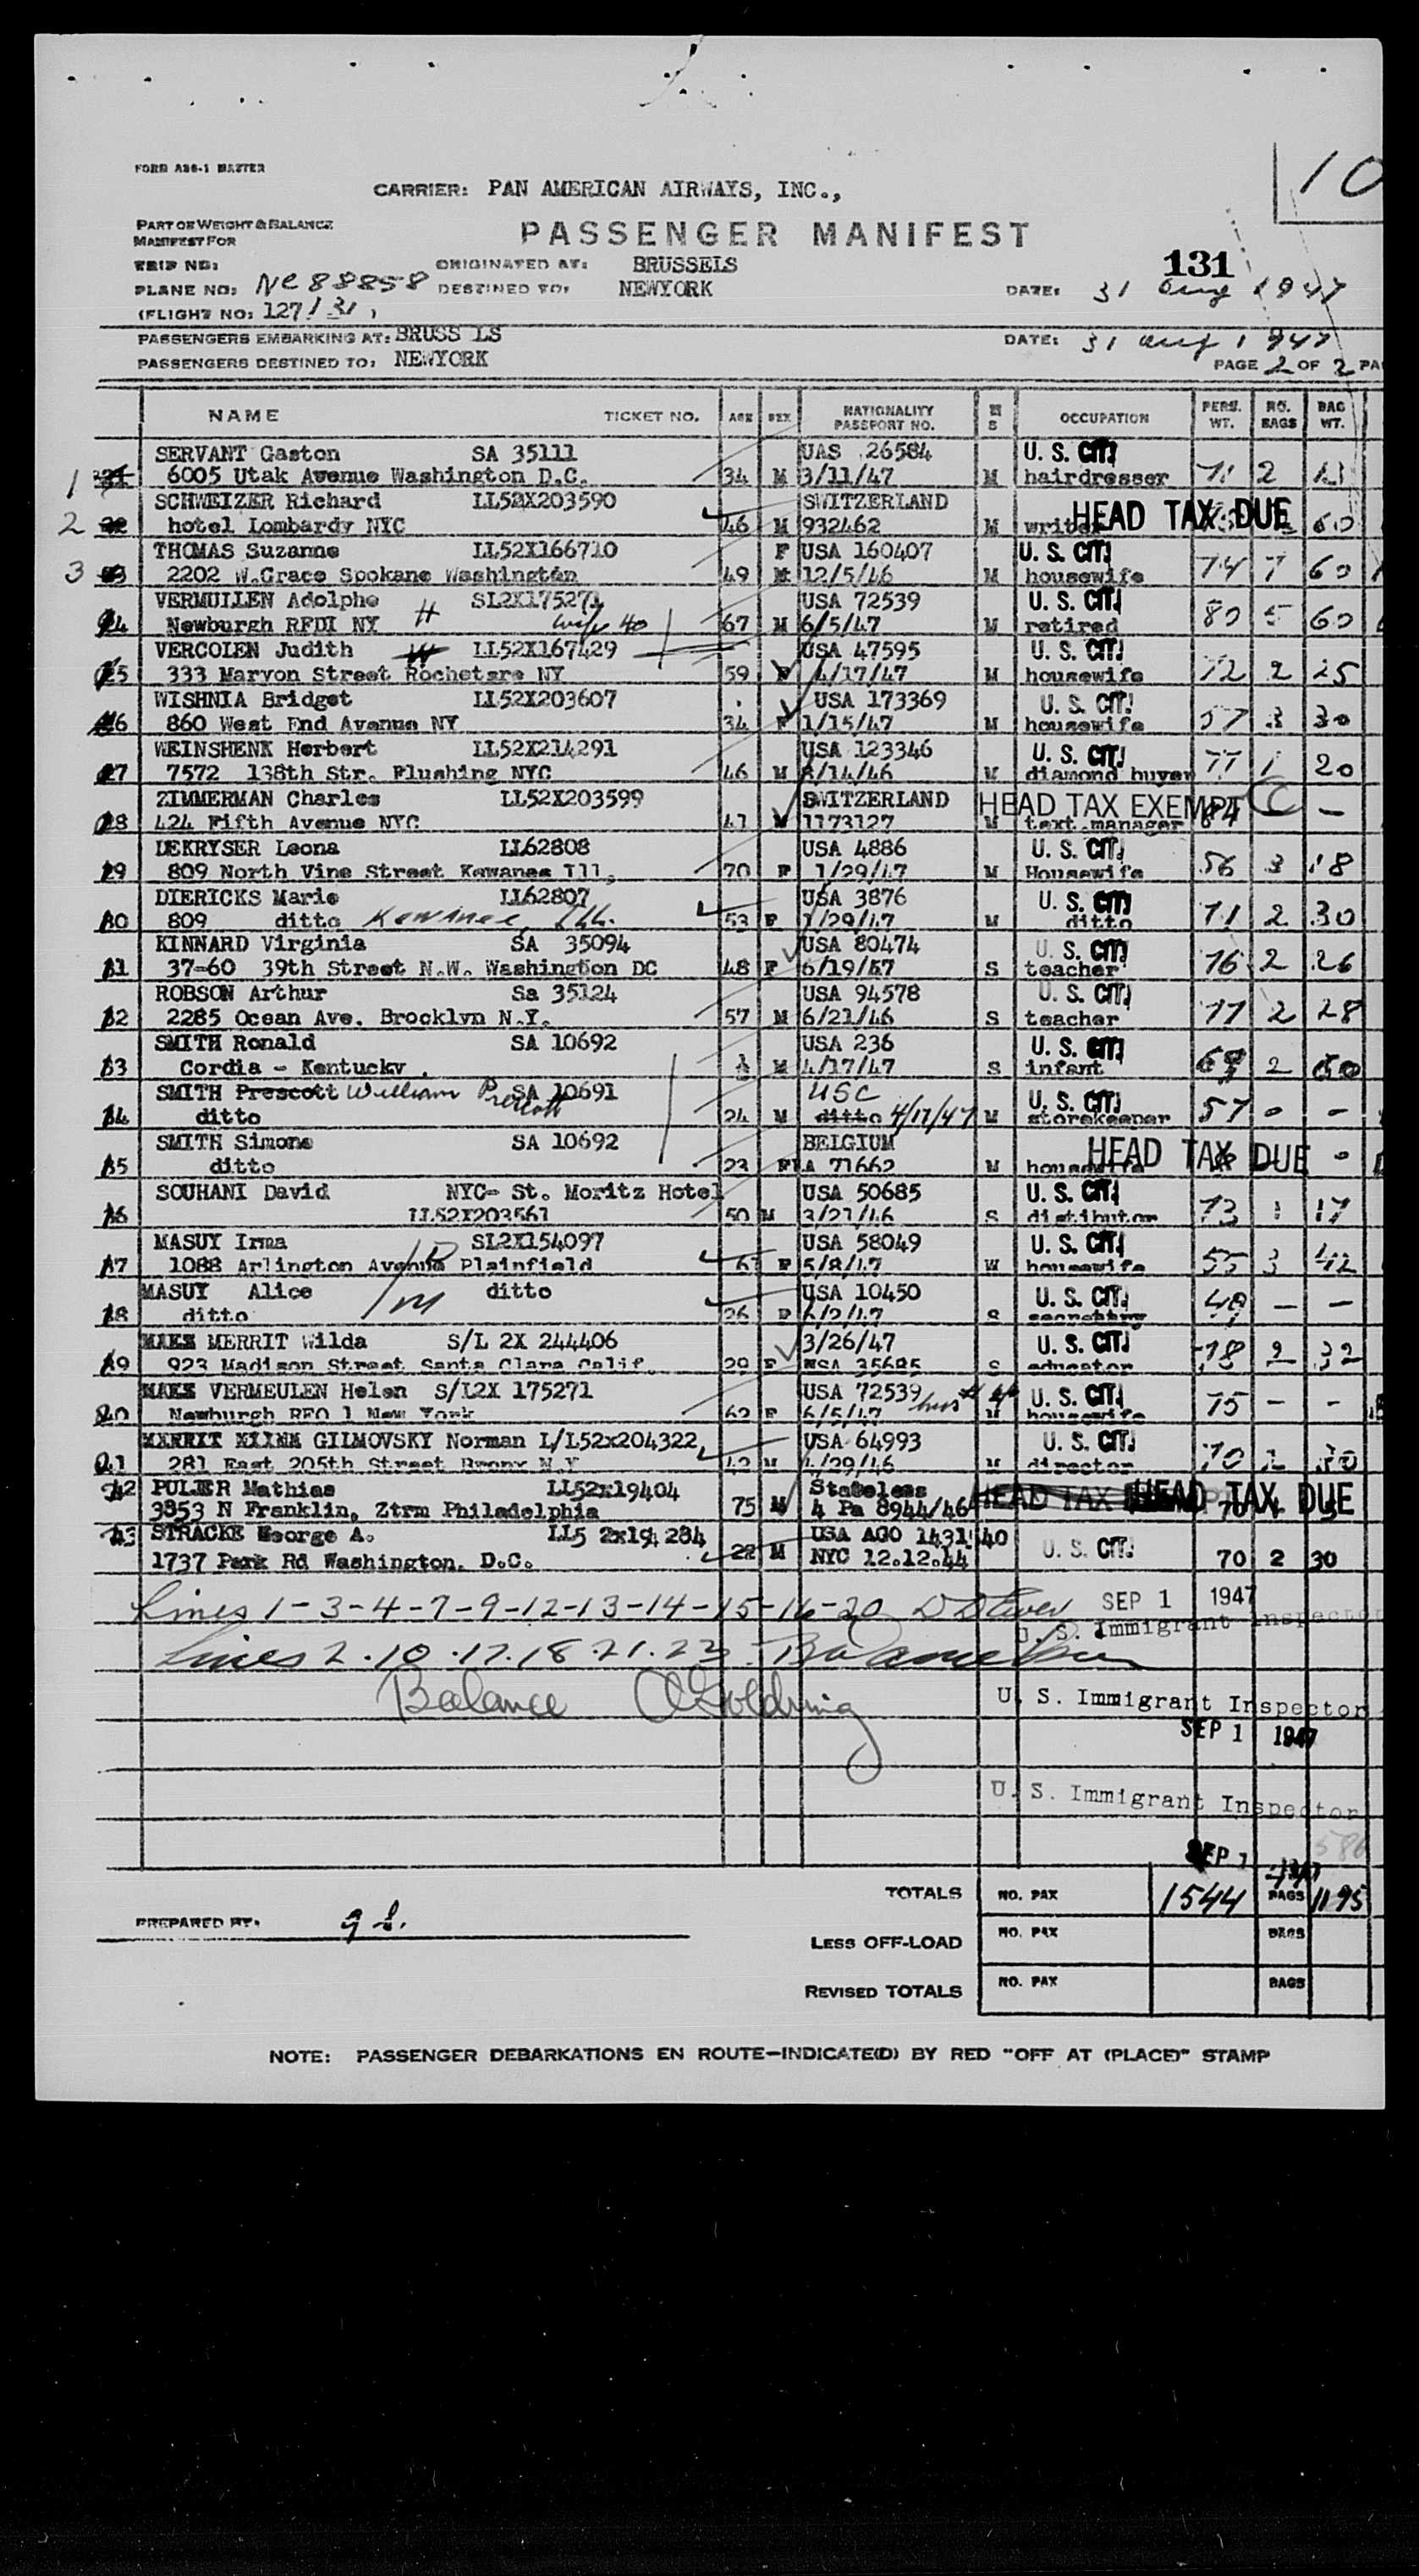 10
FORM A36-1 MASTER
CARRIER: PAN AMERICAN AIRWAYS, INC.,
PART OF WEIGHT & BALANCE
MANIFEST FOR
PASSENGER MANIFEST
131
TRIP NO:
ORIGINATED AT: BRUSSELS
PLANE NO: NC88858 DESTINED TO: NEWYORK DATE: 31 Aug 1947
(FLIGHT NO: 127/31)
PASSENGERS EMBARKING AT: BRUSS LS DATE: 31 Aug 1947
PASSENGERS DESTINED TO: NEWYORK PAGE 2 OF 2 PA
NAME TICKET NO. AGE SEX NATIONALITY PASSPORT NO. M S OCCUPATION PERS. WT. NO. BAGS BAG WT.
SERVANT Gaston SA 35111 UAS 26584 U. S. CIT.
1 6005 Utak Avenue Washington D.C. 34 M 3/11/47 M hairdresser 71 2
SCHWEIZER Richard LL52X203590 SWITZERLAND HEAD TAX DUE
2 hotel Lombardy NYC 46 M 932462 M writer 60
THOMAS Suzanne LL52X166710 F USA 160407 U. S. CIT.
3 2202 W.Grace Spokane Washington 49 M 12/5/46 M housewife 74 7 60
VERMUILEN Adolphe H SL2X175271 USA 72539 U. S. CIT.
4 Newburgh RFDI NY wife 40 67 M 6/5/47 M retired 80 5 60
VERCOLEN Judith LL52X167429 USA 47595 U. S. CIT.
5 333 Maryon Street Rochetsre NY 59 F 4/17/47 M housewife 72 2 25
WISHNIA Bridget LL52X203607 USA 173369 U. S. CIT.
6 860 West End Avenue NY 34 F 1/15/47 M housewife 57 3 30
WEINSHENK Herbert LL52X214291 USA 123346 U. S. CIT.
7 7572 138th Str. Flushing NYC 46 M 8/14/46 M diamond buyer 77 1 20
ZIMMERMAN Charles LL52X203599 SWITZERLAND HEAD TAX EXEMPT
8 424 Fifth Avenue NYC 41 M 1173127 M text manager 84 –
DEKRYSER Leona LL62808 USA 4886 U. S. CIT.
9 809 North Vine Street Kewanee Ill, 70 F 1/29/47 M Housewife 56 3 18
DIERICKS Marie LL62807 USA 3876 U. S. CIT.
10 809 ditto Kewanee, Ill. 53 F 1/29/47 M ditto 71 2 30
KINNARD Virginia SA 35094 USA 80474 U. S. CIT.
11 37-60 39th Street N.W. Washington DC 48 F 6/19/47 S teacher 76 2 26
ROBSON Arthur Sa 35124 USA 94578 U. S. CIT.
12 2285 Ocean Ave. Brocklyn N.Y. 57 M 6/21/46 S teacher 77 2 28
SMITH Ronald SA 10692 USA 236 U. S. CIT.
13 Cordia - Kentucky . M 4/17/47 S infant 2 60
SMITH Prescott William Prescott SA 10691 USC U. S. CIT.
14 ditto 24 M ditto 4/17/47 M storekeeper 57 - -
SMITH Simone SA 10692 BELGIUM HEAD TAX DUE
15 ditto 23 F LA 71662 M housewife -
SOUHANI David NYC- St. Moritz Hotel USA 50685 U. S. CIT.
16 LL52X203561 50 M 3/21/46 S distibutor 73 1 17
MASUY Irma SL2X154097 USA 58049 U. S. CIT.
17 1088 Arlington Avenue Plainfield F 5/8/47 W housewife 55 3 42
MASUY Alice ditto USA 10450 U. S. CIT.
18 ditto 26 F 6/2/47 S secretary 49 – –
MERRIT Wilda S/L 2X 244406 3/26/47 U. S. CIT.
19 923 Madison Street Santa Clara Calif. 29 F USA 35685 S educator 78 2 32
VERMEULEN Helen S/L2X 175271 USA 72539 U. S. CIT.
20 Newburgh RFO 1 New York 62 F 6/5/47 M housewife 75 – –
GILMOVSKY Norman L/L52x204322, USA 64993 U. S. CIT.
21 281 East 205th Street Bronx N.Y 42 M 4/29/46 M director 70 2 30
PULJER Mathias LL52x19404 Stateless HEAD TAX DUE
3853 N Franklin, Ztrm Philadelphia 75 M 4 Pa 8944/46 70
STRACKE George A. LL5 2x194 284 USA AGO 1431 40 U. S. CIT.
1737 Park Rd Washington, D.C. 22 M NYC 12.12.44 70 2 30
Lines 1-3-4-7-9-12-13-14-15-16-20 SEP 1 1947
U. S. Immigrant Inspector
Lines 2.10.17.18.21.23
Balance U. S. Immigrant Inspector
SEP 1 1947
U. S. Immigrant Inspector
SEP 1 1947
TOTALS NO. PAX 1544 BAGS 1195
PREPARED BY:
LESS OFF-LOAD NO. PAX BAGS
REVISED TOTALS NO. PAX BAGS
NOTE: PASSENGER DEBARKATIONS EN ROUTE—INDICATE(D) BY RED "OFF AT (PLACE)" STAMP